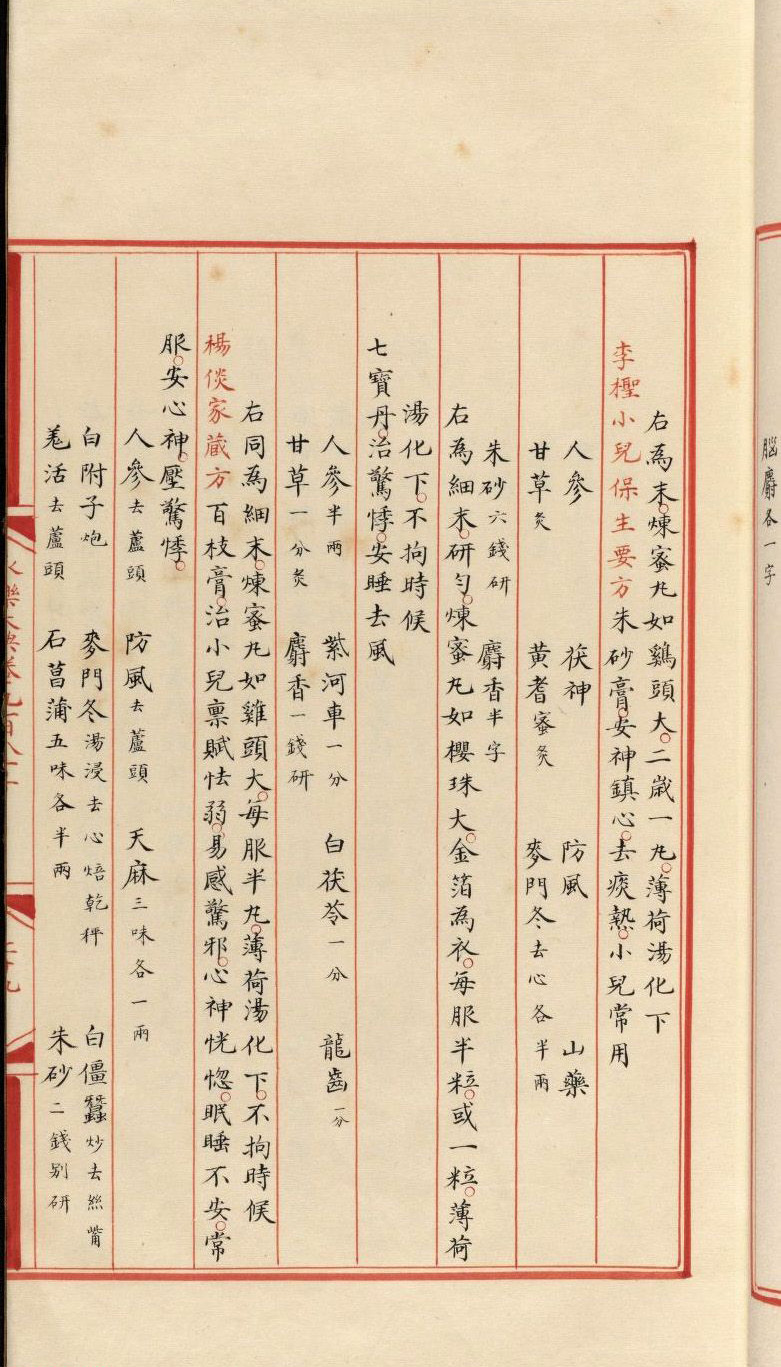 腦麝各一字
右為末。煉蜜丸如鷄頭大。二歲一丸。薄荷湯化下
李檉小兒保生要方朱砂膏。安神鎮心。去痰熱。小兒常用
人參 茯神 防風 山藥
甘草炙 黃耆蜜炙 麥門冬去心各半兩
朱砂六錢研 麝香半字
右為細末。研勻。煉蜜丸如櫻珠大。金箔為衣。每服半粒。或一粒。薄荷
湯化下。不拘時候
七寶丹。治驚悸。安睡去風
人參半兩 紫河車一分 白茯苓一分 龍齒一分
甘草一分炙 麝香一錢研
右同為細末。煉蜜丸如雞頭大。每服半丸。薄荷湯化下。不拘時候
楊倓家藏方百枝膏。治小兒稟賦怯弱。易感驚邪。心神恍惚。眠睡不安。常
服。安心神。壓驚悸。
人參去蘆頭 防風去蘆頭 天麻三味各一兩
白附子炮 麥門冬湯浸去心焙乾秤 白僵蠶炒去絲觜
羌活去蘆頭 石菖蒲五味各半兩 朱砂二錢別研